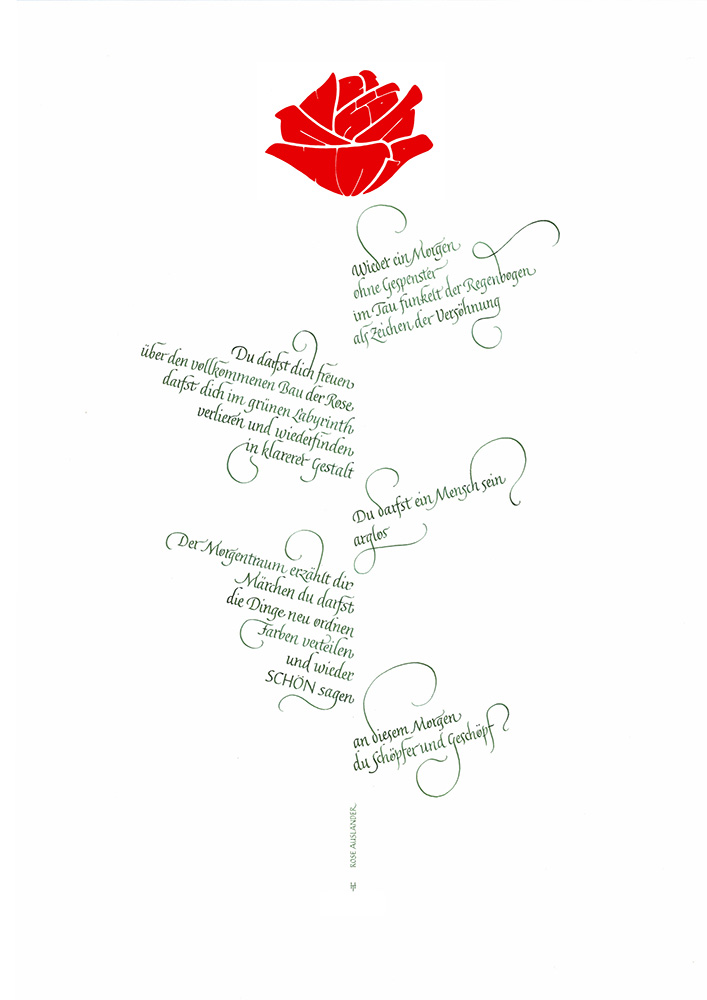 Wieder ein Morgen
ohne Gespenster
im Tau funkelt der Regenbogen
als Zeichen der Versöhnung
Du darfst dich freuen
über den vollkommenen Bau der Rose
darfst dich im grünen Labyrinth
verlieren und wiederfinden
in klarerer Gestalt
Du darfst ein Mensch sein
arglos
Der Morgentraum erzählt dir
Märchen du darfst
die Dinge neu ordnen
Farben verteilen
und wieder
SCHÖN sagen
an diesem Morgen
du Schöpfer und Geschöpf
ROSE AUSLÄNDER